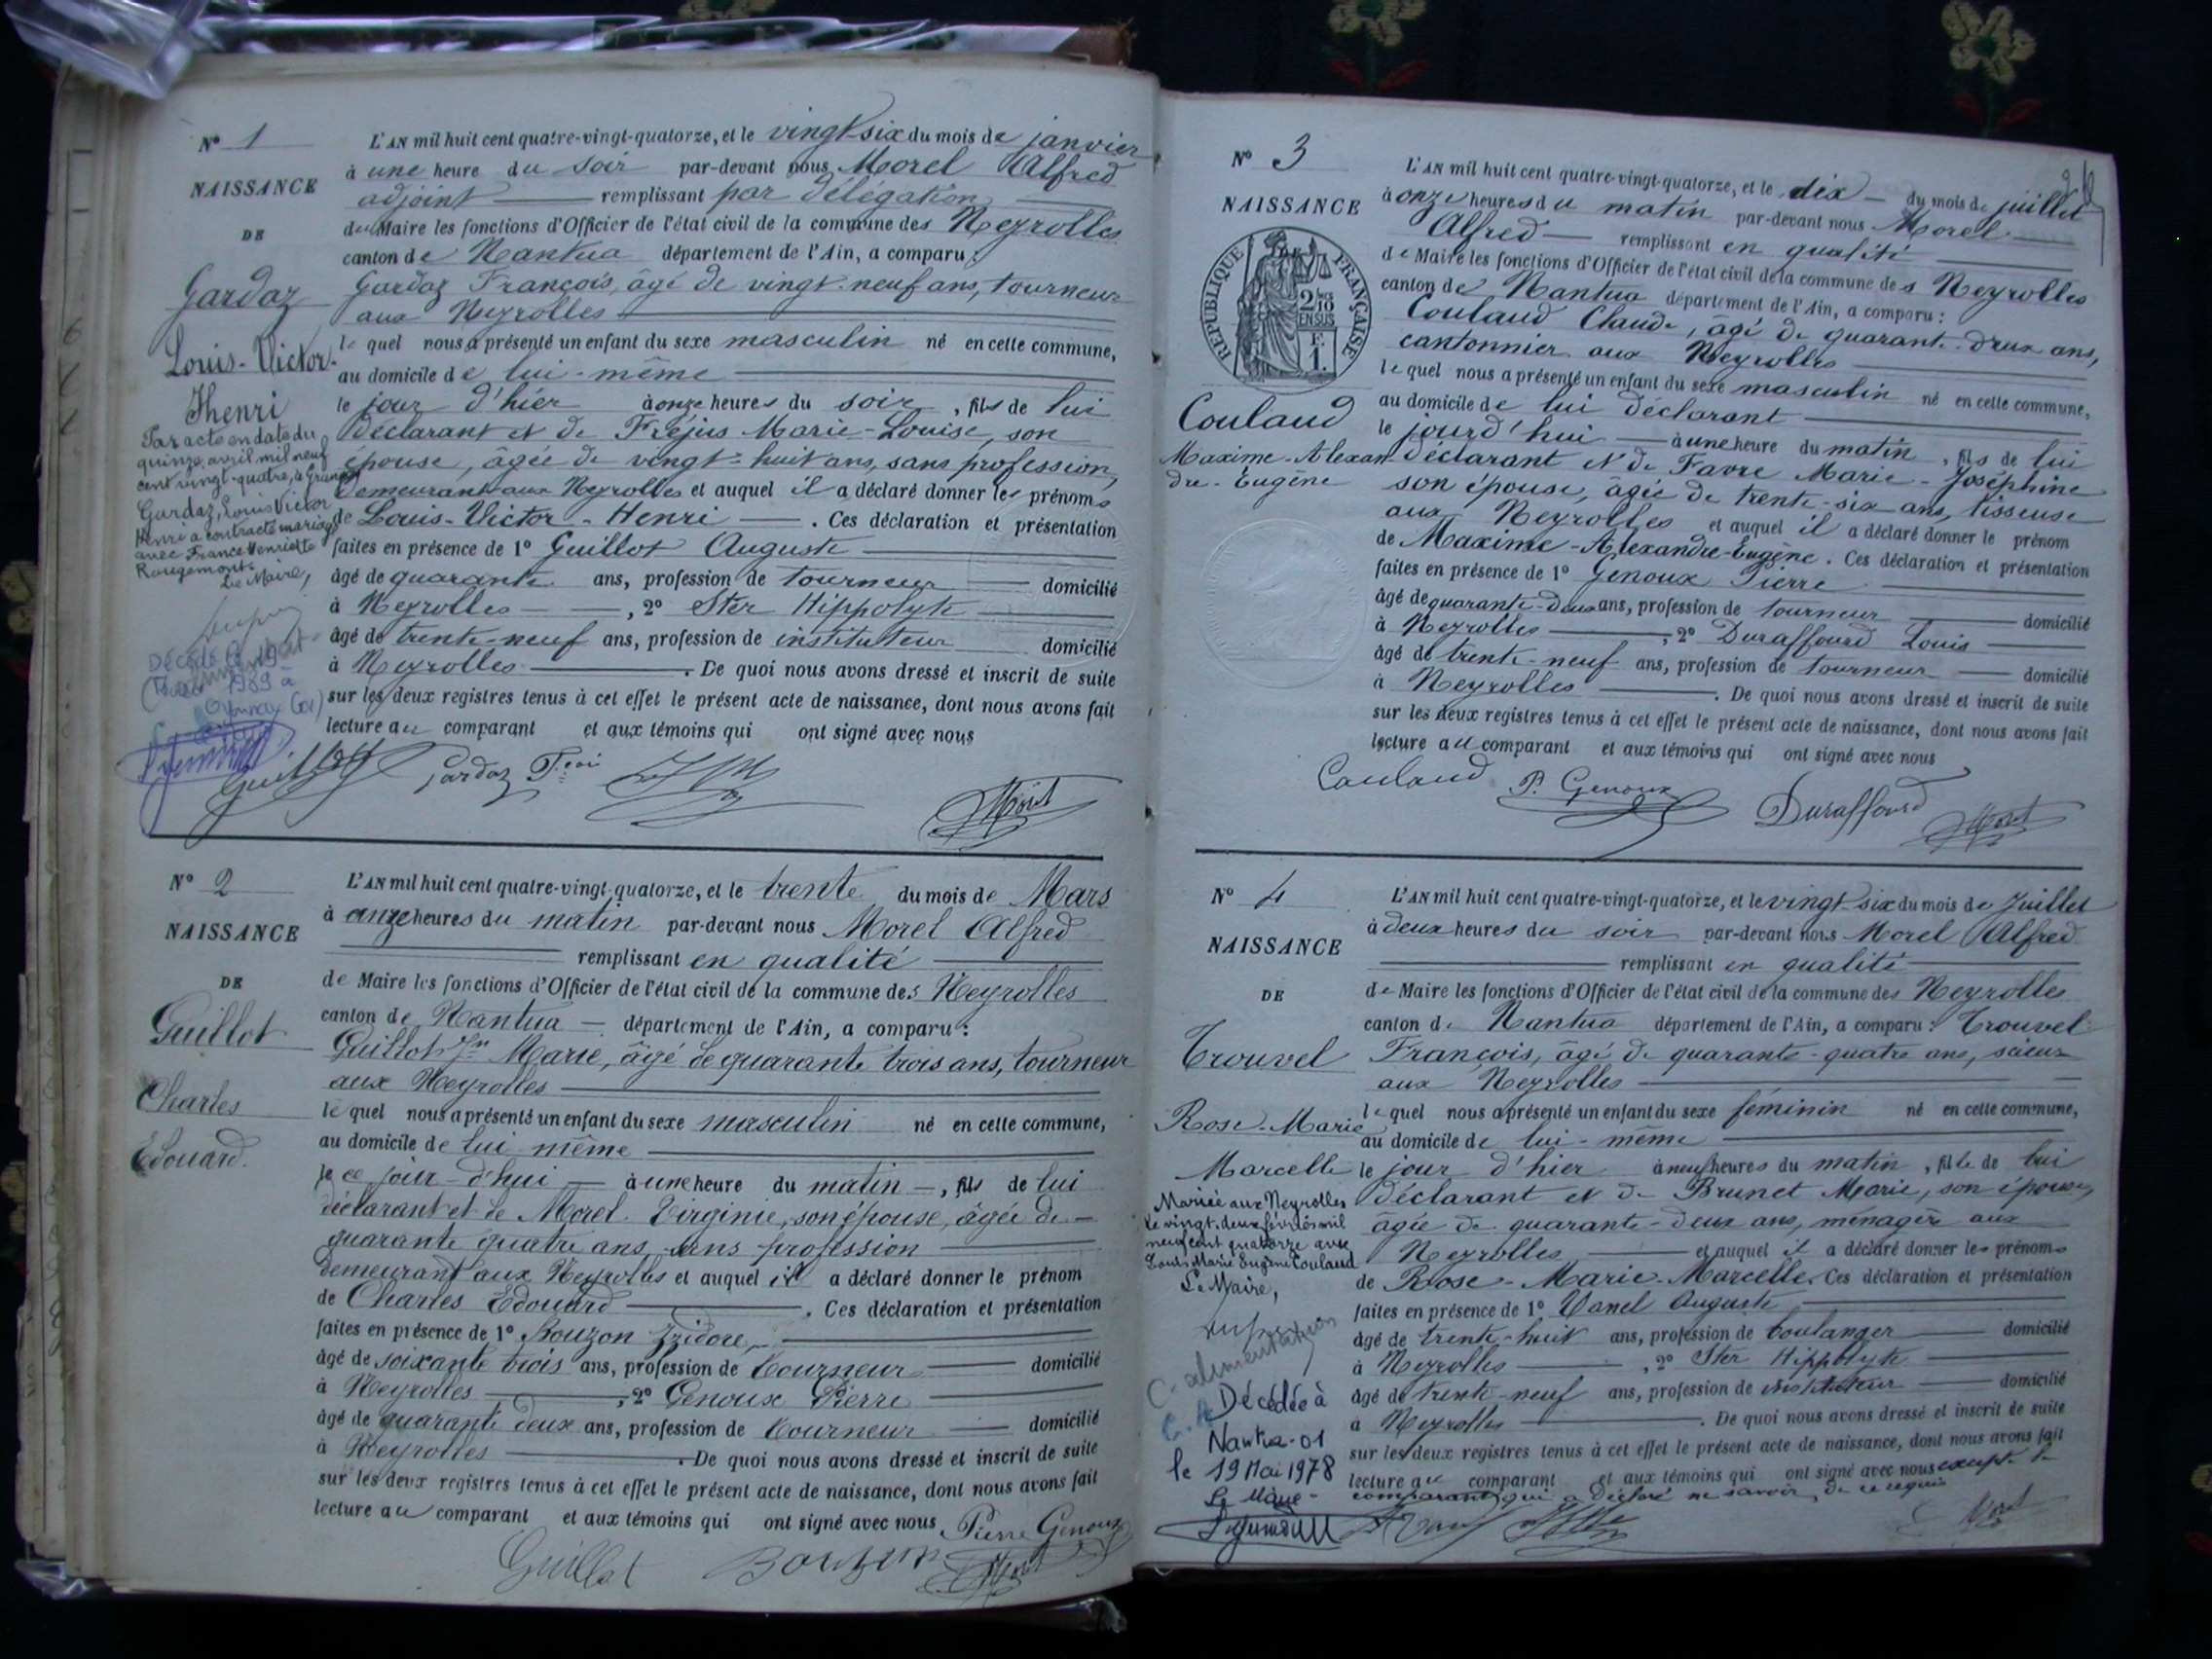 N° 1
NAISSANCE
DE
Gardaz
Louis-Victor-
Henri
Par acte en date du
quinze avril mil neuf
cent vingt-quatre, à
Gardaz, Louis Victor
Henri a contracté mariage
avec France Henriette
Rougemont.
Le Maire,
L'AN mil huit cent quatre-vingt-quatorze, et le vingt-six du mois de janvier
à une heure du soir par-devant nous Morel Alfred
adjoint remplissant par délégation
du Maire les fonctions d'Officier de l'état civil de la commune des Neyrolles
canton de Nantua département de l'Ain, a comparu :
Gardaz François, âgé de vingt-neuf ans, tourneur
aux Neyrolles
le quel nous a présenté un enfant du sexe masculin né en cette commune,
au domicile de lui-même
le jour d'hier à onze heures du soir, fils de lui
déclarant et de Fréjus Marie-Louise, son
épouse, âgée de vingt-huit ans, sans profession,
demeurant aux Neyrolles et auquel il a déclaré donner les prénoms
de Louis-Victor-Henri. Ces déclaration et présentation
faites en présence de 1° Guillot Auguste
âgé de quarante ans, profession de tourneur domicilié
à Neyrolles, 2° Ster Hippolyte
âgé de trente-neuf ans, profession de instituteur domicilié
à Neyrolles. De quoi nous avons dressé et inscrit de suite
sur les deux registres tenus à cet effet le présent acte de naissance, dont nous avons fait
lecture au comparant et aux témoins qui ont signé avec nous
Guillot Gardaz Morel
N° 2
NAISSANCE
DE
Guillot
Charles
Edouard.
L'AN mil huit cent quatre-vingt-quatorze, et le trente du mois de Mars
à onze heures du matin par-devant nous Morel Alfred
remplissant en qualité
de Maire les fonctions d'Officier de l'état civil de la commune des Neyrolles
canton de Nantua département de l'Ain, a comparu :
Guillot Jn Marie, âgé de quarante trois ans, tourneur
aux Neyrolles
le quel nous a présenté un enfant du sexe masculin né en cette commune,
au domicile de lui même
le ce jour-d'hui à une heure du matin, fils de lui
déclarant et de Morel Virginie, son épouse, âgée de
quarante quatre ans, sans profession
demeurant aux Neyrolles et auquel il a déclaré donner le prénom
de Charles Edouard. Ces déclaration et présentation
faites en présence de 1° Bouzon Izidore,
âgé de soixante trois ans, profession de tourneur domicilié
à Neyrolles, 2° Genoux Pierre
âgé de quarante deux ans, profession de tourneur domicilié
à Neyrolles. De quoi nous avons dressé et inscrit de suite
sur les deux registres tenus à cet effet le présent acte de naissance, dont nous avons fait
lecture au comparant et aux témoins qui ont signé avec nous Pierre Genoux
Guillot Bouzon Morel
N° 3
NAISSANCE
RÉPUBLIQUE FRANÇAISE
2/10 EN SUS
F. 1.
Couland
Maxime-Alexan-
dre-Eugène
L'AN mil huit cent quatre-vingt-quatorze, et le dix du mois de juillet
à onze heures du matin par-devant nous Morel
Alfred remplissant en qualité
de Maire les fonctions d'Officier de l'état civil de la commune des Neyrolles
canton de Nantua département de l'Ain, a comparu :
Couland Claude, âgé de quarante-deux ans,
cantonnier aux Neyrolles
le quel nous a présenté un enfant du sexe masculin né en cette commune,
au domicile de lui déclarant
le jourd'hui à une heure du matin, fils de lui
déclarant et de Favre Marie-Joséphine
son épouse, âgée de trente-six ans, tisseuse
aux Neyrolles et auquel il a déclaré donner le prénom
de Maxime-Alexandre-Eugène. Ces déclaration et présentation
faites en présence de 1° Genoux Pierre
âgé de quarante-deux ans, profession de tourneur domicilié
à Neyrolles, 2° Duraffourd Louis
âgé de trente-neuf ans, profession de tourneur domicilié
à Neyrolles. De quoi nous avons dressé et inscrit de suite
sur les deux registres tenus à cet effet le présent acte de naissance, dont nous avons fait
lecture au comparant et aux témoins qui ont signé avec nous
Couland P. Genoux Duraffourd Morel
N° 4
NAISSANCE
DE
Trouvel
Rose-Marie
Marcelle
Mariée aux Neyrolles
le vingt-deux février mil
neuf cent quatorze avec
Louis Marie Eugène Couland
Le Maire,
C. alimentation
Décédée à
Nantua-01
le 19 Mai 1978
Le Maire
L'AN mil huit cent quatre-vingt-quatorze, et le vingt-six du mois de Juillet
à deux heures du soir par-devant nous Morel Alfred
remplissant en qualité
de Maire les fonctions d'Officier de l'état civil de la commune des Neyrolles
canton de Nantua département de l'Ain, a comparu : Trouvel
François, âgé de quarante-quatre ans, scieur
aux Neyrolles
le quel nous a présenté un enfant du sexe féminin né en cette commune,
au domicile de lui-même
le jour d'hier à neuf heures du matin, fille de lui
déclarant et de Brunet Marie, son épouse,
âgée de quarante-deux ans, ménagère aux
Neyrolles et auquel il a déclaré donner les prénoms
de Rose-Marie-Marcelle. Ces déclaration et présentation
faites en présence de 1° Vanel Auguste
âgé de trente-huit ans, profession de boulanger domicilié
à Neyrolles, 2° Ster Hippolyte
âgé de trente-neuf ans, profession de instituteur domicilié
à Neyrolles. De quoi nous avons dressé et inscrit de suite
sur les deux registres tenus à cet effet le présent acte de naissance, dont nous avons fait
lecture au comparant et aux témoins qui ont signé avec nous excepté le
comparant qui a déclaré ne savoir, de ce requis
Morel